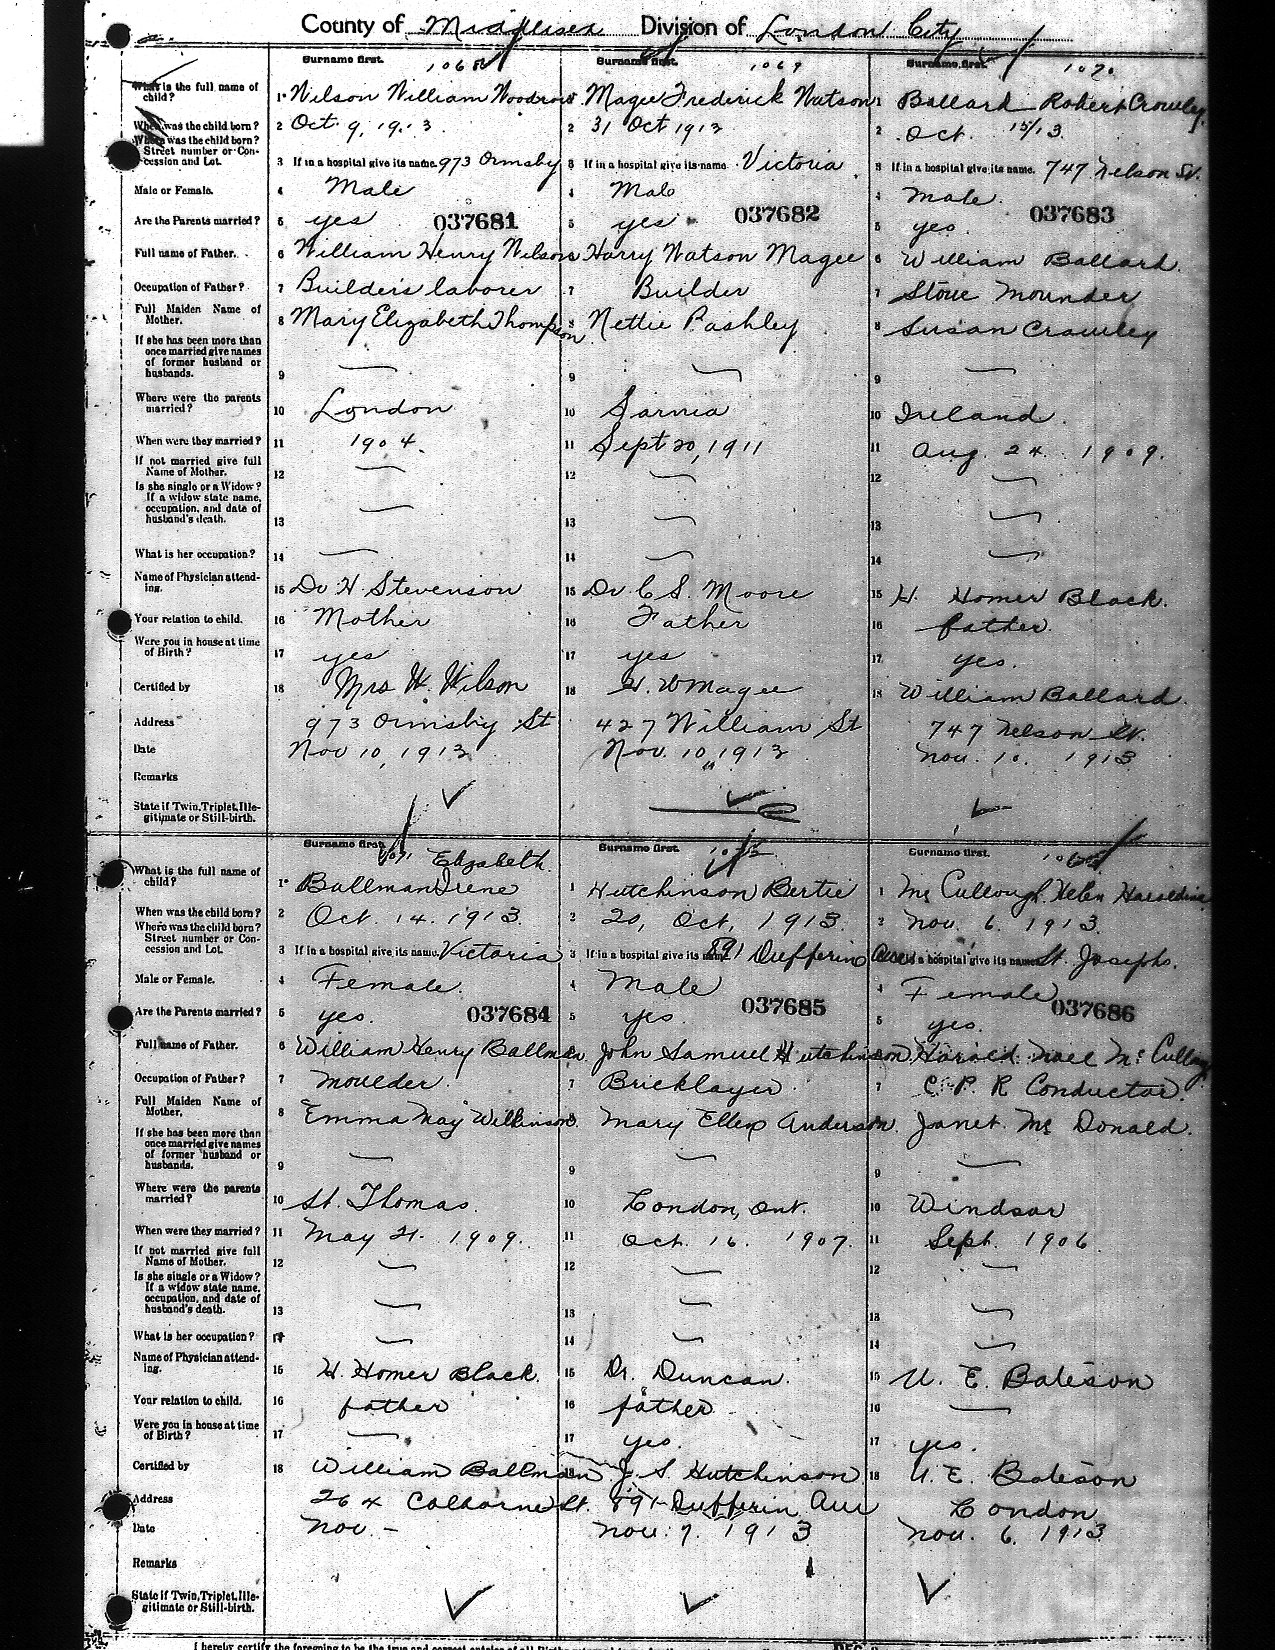 County of Middlesex Division of London City
Surname first. Surname first. Surname first.
1068 1069 1070
What is the full name of child? 1 Wilson William Woodrow 1 Magee Frederick Watson 1 Ballard Robert Crowley
When was the child born? 2 Oct 9, 1913 2 31 Oct 1913 2 Oct. 15/13
Where was the child born? Street number or Concession and Lot. 3 If in a hospital give its name. 973 Ormsby 3 If in a hospital give its name. Victoria 3 If in a hospital give its name. 747 Nelson St.
Male or Female. 4 Male 4 Male 4 Male.
Are the Parents married? 5 yes 037681 5 yes 037682 5 yes. 037683
Full name of Father. 6 William Henry Wilson 6 Harry Watson Magee 6 William Ballard.
Occupation of Father? 7 Builders laborer 7 Builder 7 Stove Mounder
Full Maiden Name of Mother. 8 Mary Elizabeth Thompson 8 Nettie Pashley 8 Susan Crawley
If she has been more than once married give names of former husband or husbands. 9 — 9 — 9 —
Where were the parents married? 10 London 10 Sarnia 10 Ireland.
When were they married? 11 1904. 11 Sept 20, 1911 11 Aug. 24. 1909.
If not married give full Name of Mother. 12 — 12 — 12 —
Is she single or a Widow? If a widow state name, occupation, and date of husband's death. 13 — 13 — 13 —
What is her occupation? 14 — 14 — 14 —
Name of Physician attending. 15 Dr H. Stevenson 15 Dr C. S. Moore 15 H. Homer Black.
Your relation to child. 16 Mother 16 Father 16 father
Were you in house at time of Birth? 17 yes 17 yes 17 yes.
Certified by 18 Mrs W. Wilson 18 H. W Magee 18 William Ballard
Address 973 Ormsby St 427 William St 747 Nelson St.
Date Nov 10, 1913 Nov. 10, 1913 Nov. 10. 1913
Remarks
State if Twin, Triplet, Illegitimate or Still-birth.
Surname first. Surname first. Surname first.
1071
What is the full name of child? 1 Ballman Elizabeth Irene 1 Hutchinson Bertie 1 Mc Cullough, Helen Haroldina
When was the child born? 2 Oct. 14. 1913. 2 20, Oct, 1913. 2 Nov. 6. 1913.
Where was the child born? Street number or Concession and Lot. 3 If in a hospital give its name. Victoria 3 If in a hospital give its name 891 Dufferin Ave If in a hospital give its name St. Josephs.
Male or Female. 4 Female. 4 Male 4 Female
Are the Parents married? 5 yes. 037684 5 yes 037685 5 yes. 037686
Full name of Father. 6 William Henry Ballman 6 John Samuel Hutchinson 6 Harold Noel Mc Cullough
Occupation of Father? 7 Moulder. 7 Bricklayer 7 C. P. R Conductor.
Full Maiden Name of Mother. 8 Emma May Wilkinson. 8 Mary Ellen Anderson 8 Janet Mc Donald.
If she has been more than once married give names of former husband or husbands. 9 — 9 — 9 —
Where were the parents married? 10 St. Thomas. 10 London, Ont. 10 Windsor
When were they married? 11 May 21. 1909. 11 Oct. 16. 1907. 11 Sept. 1906.
If not married give full Name of Mother. 12 — 12 — 12 —
Is she single or a Widow? If a widow state name, occupation, and date of husband's death. 13 — 13 — 13 —
What is her occupation? 14 — 14 — 14 —
Name of Physician attending. 15 H. Homer Black. 15 Dr. Duncan. 15 U. E. Bateson
Your relation to child. 16 father 16 father 16 —
Were you in house at time of Birth? 17 — 17 yes. 17 yes.
Certified by 18 William Ballman 18 J. S. Hutchinson 18 U. E. Bateson
Address 264 Colborne St. 891 Dufferin Ave London
Date Nov. — Nov. 7. 1913 Nov. 6. 1913
Remarks
State if Twin, Triplet, Illegitimate or Still-birth.
I hereby certify the foregoing to be the true and correct entries of all Births